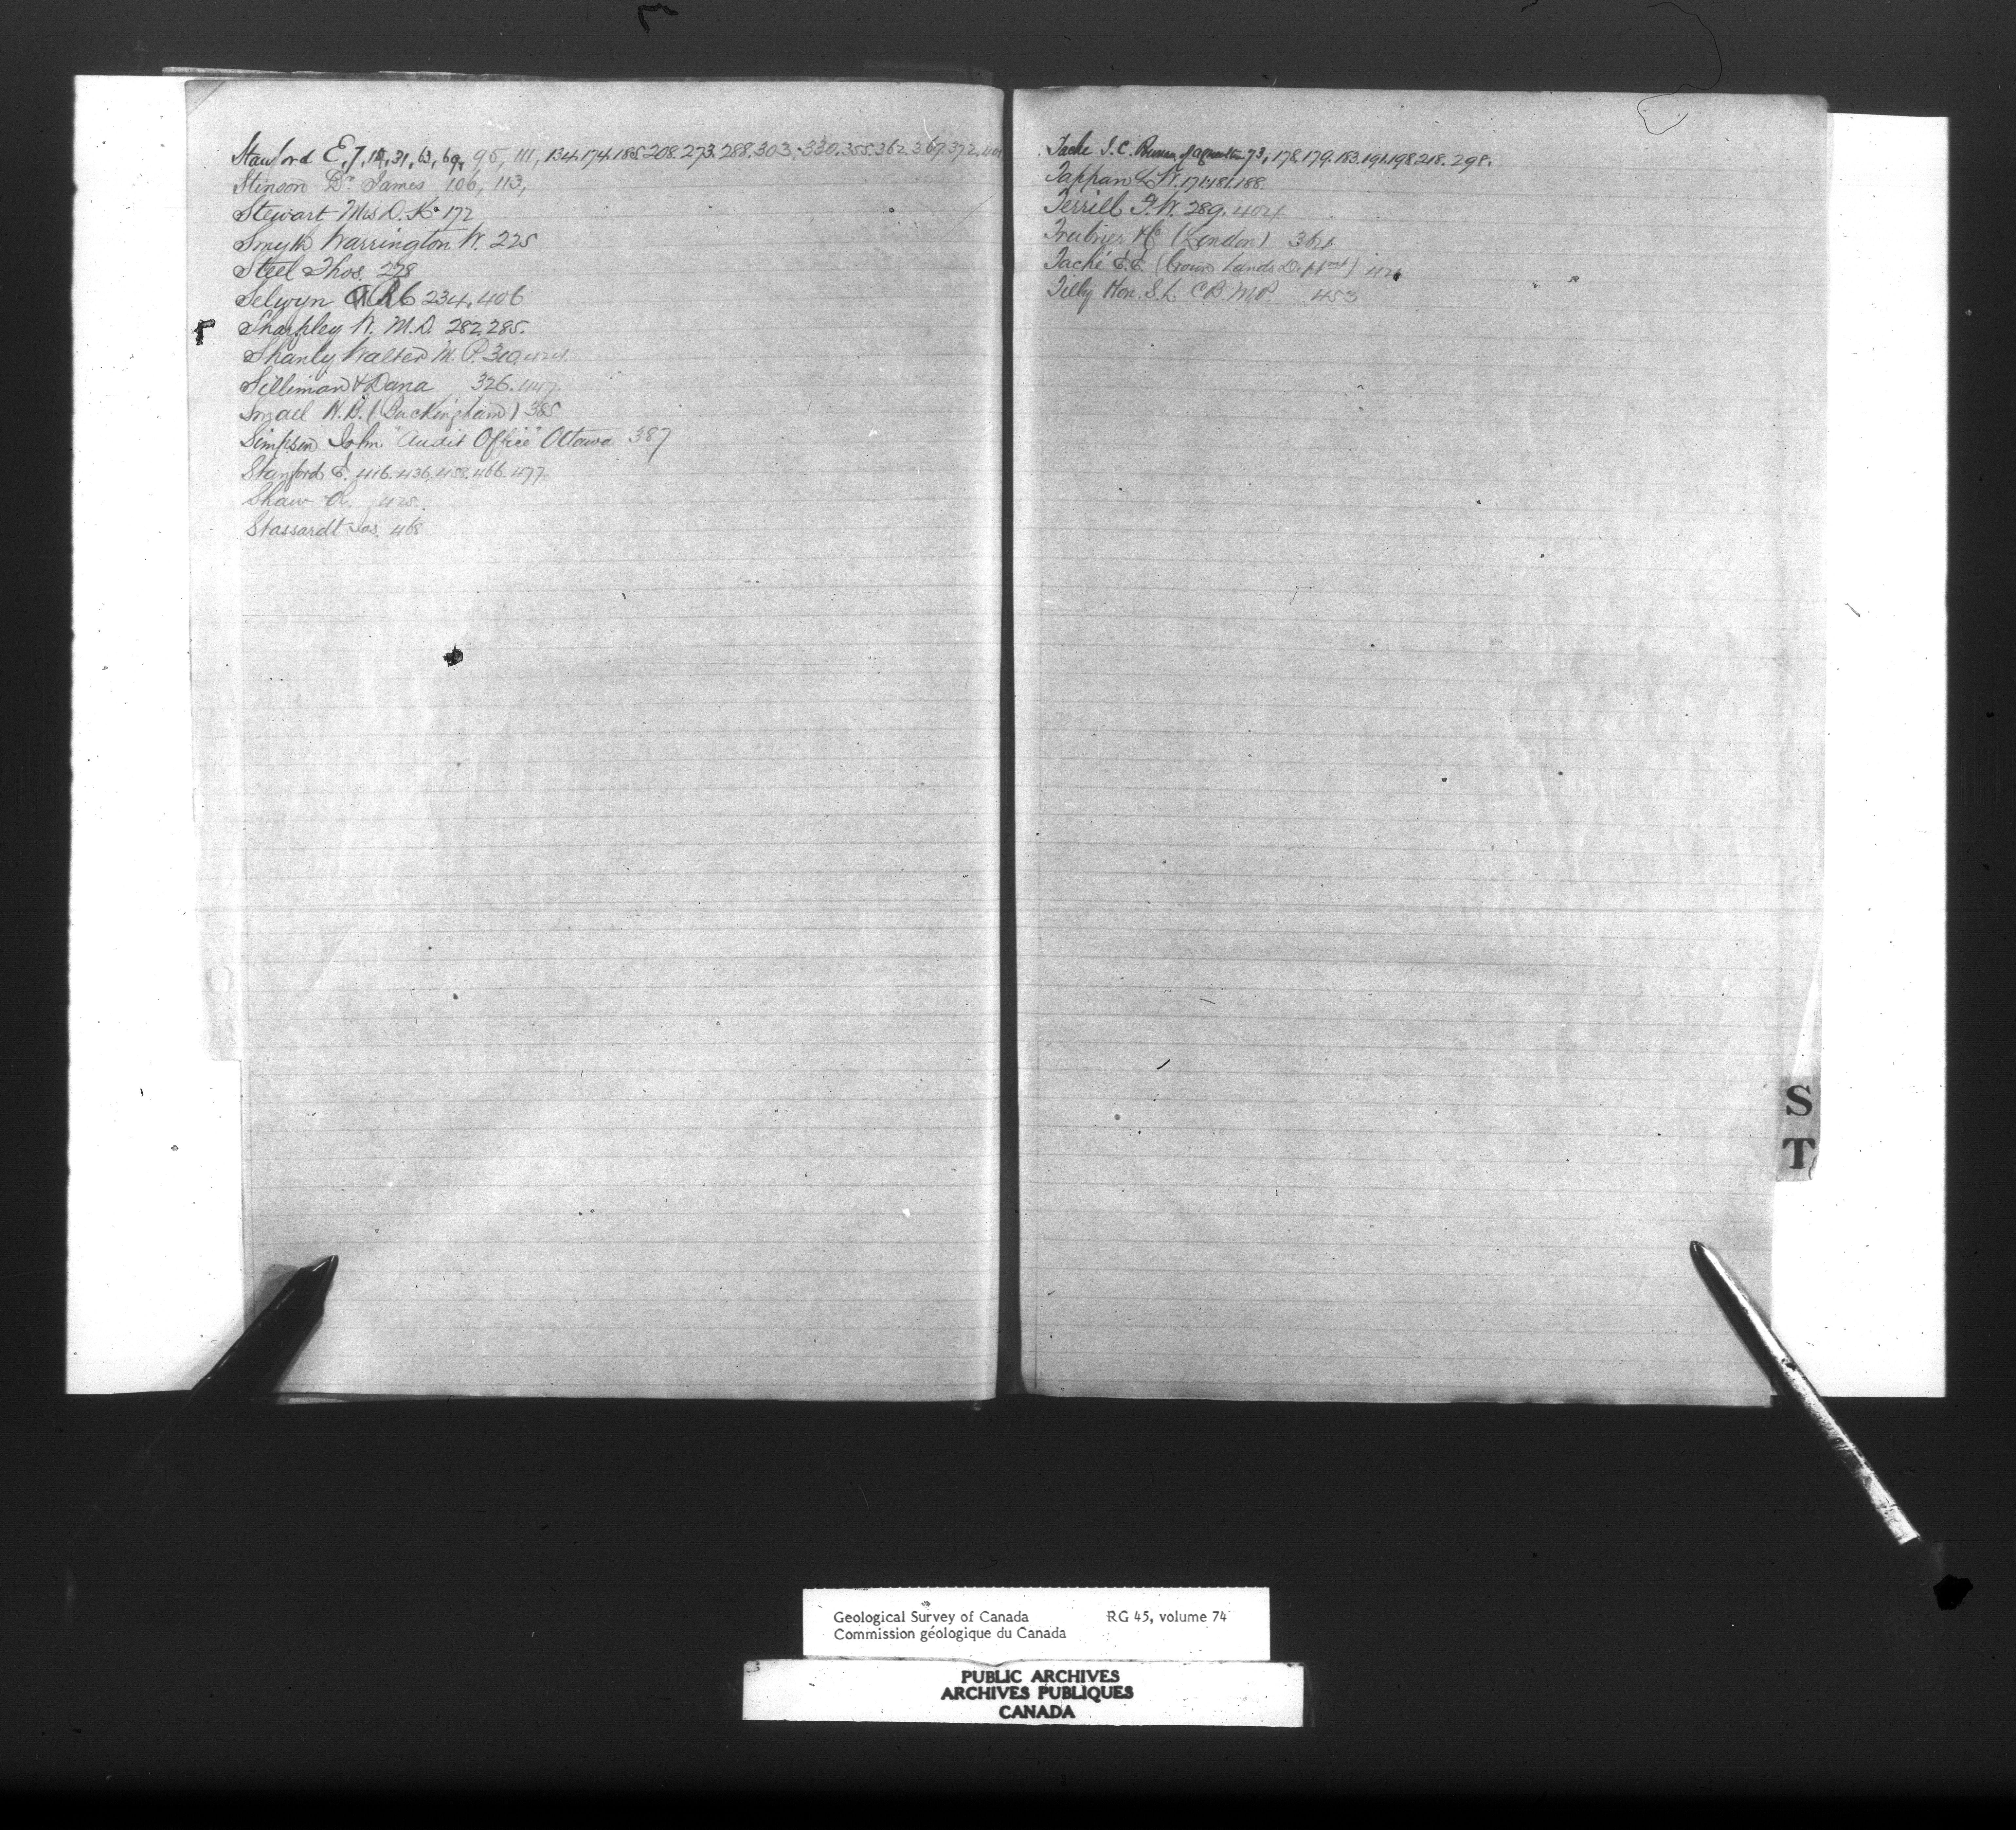 Stanford E, 7, 19, 31, 63, 69, 95, 111, 134.174.185.208.273.288.303.330.355.362.367.372.401
Stinson Dr James 106, 113,
Stewart Mrs D. K. 172
Smyth Warrington W. 225
Steel Thos. 278
Selwyn A R C 234, 406
Sharpley W. M.D. 282.285.
Shanly Walter M. P. 310.
Silliman & Dana 326. 447.
Small H. B. (Buckingham) 385
Simpson John. "Audit Office" Ottawa 387
Stanford E. 416. 436. 458. 466. 477
Shaw 425.
Stassardt Jos. 468
Tache J. C. Bureau of Agriculture 73, 178.179.183.191.198.218. 298.
Tappan 171.181.188.
Terrill 289. 404
Trubner & Co (London) 364
Taché E. E. (Crown Lands Deptmt) 426
Tilly Hon. S. L. C B. M.P. 453
S
T
Geological Survey of Canada RG 45, volume 74
Commission géologique du Canada
PUBLIC ARCHIVES
ARCHIVES PUBLIQUES
CANADA